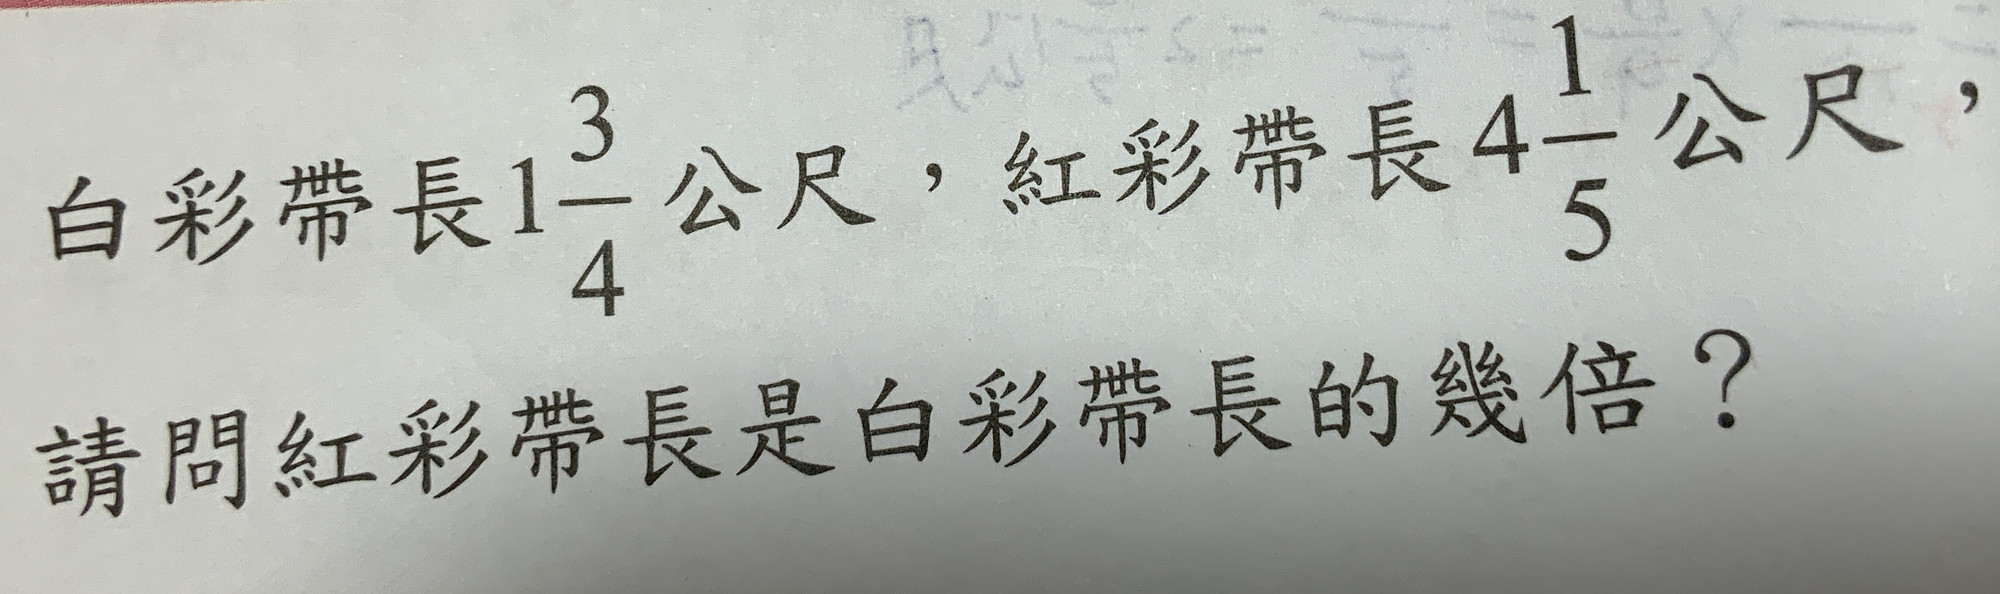 白彩帶長1 3/4公尺，紅彩帶長4 1/5公尺，
請問紅彩帶長是白彩帶長的幾倍？